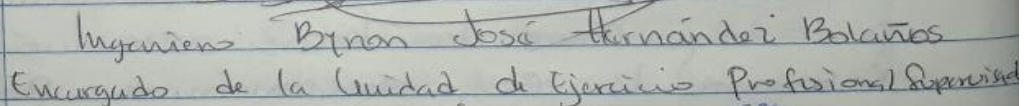 Ingeniero Byron José Hernández Bolaños
Encargado de la Unidad de Ejercicio Profesional Supervisad